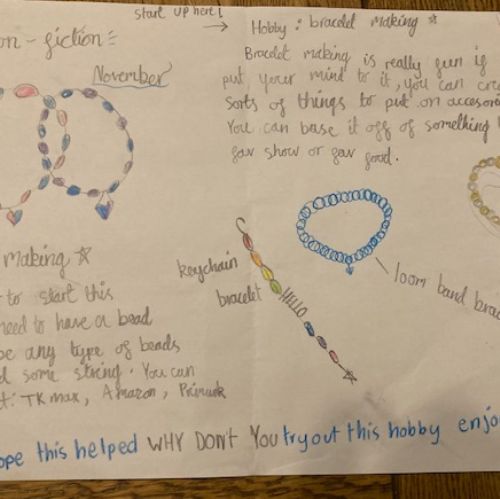 start up here!
on-fiction
November
Hobby: bracelet making
Bracelet making is really fun if
put your mind to it, you can cre
sorts of things to put on accesor
You can base it off of something
fav show or fav food.
making
to start this
need to have a bead
be any type of beads
d some string. You can
t: TK max, Amazon, Primark
keychain
bracelet
HELLO
loom band brac
ope this helped WHY DON't You try out this hobby enjo